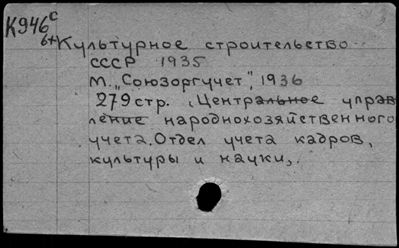 К946с
бт Культурное строительство
СССР 1935
М. „Союзоргучет", 1936
279 стр. (Центральное управ
ление народнохозяйственного
учета. Отдел учета кадров,
культуры и науки).